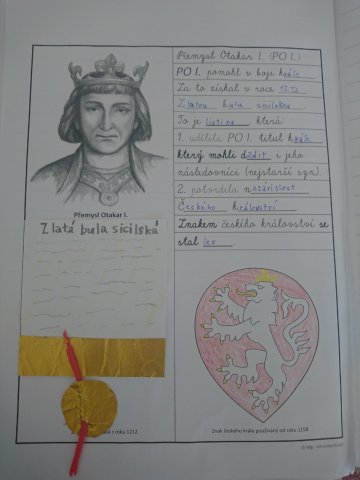 Přemysl Otakar I. (PO I.)
PO I. pomohl v boji krále
Za to získal v roce 1212
Zlatou bulu sicilskou.
To je listina, která:
1. udělila PO I. titul krále
který mohli dědit i jeho
následovníci (nejstarší syn).
2. potvrdila nezávislost
Českého království.
Znakem českého království se
stal lev.
Přemysl Otakar I.
Zlatá bula sicilská
z roku 1212
Znak českého krále používaný od roku 1158
© Mgr. Veronika